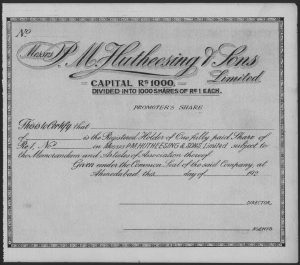 No
Messrs P. M. Hutheesing & Sons
Limited.
CAPITAL RS 1000.
DIVIDED INTO 1000 SHARES OF RE 1 EACH.
PROMOTER'S SHARE
This is to Certify that
of is the Registered Holder of One fully paid Share of
Re 1. No in Messrs P.M. HUTHEESING & SONS, Limited subject to
the Memorandum and Articles of Association thereof.
Given under the Common Seal of the said Company at
Ahmedabad this day of 192
DIRECTOR
AGENTS